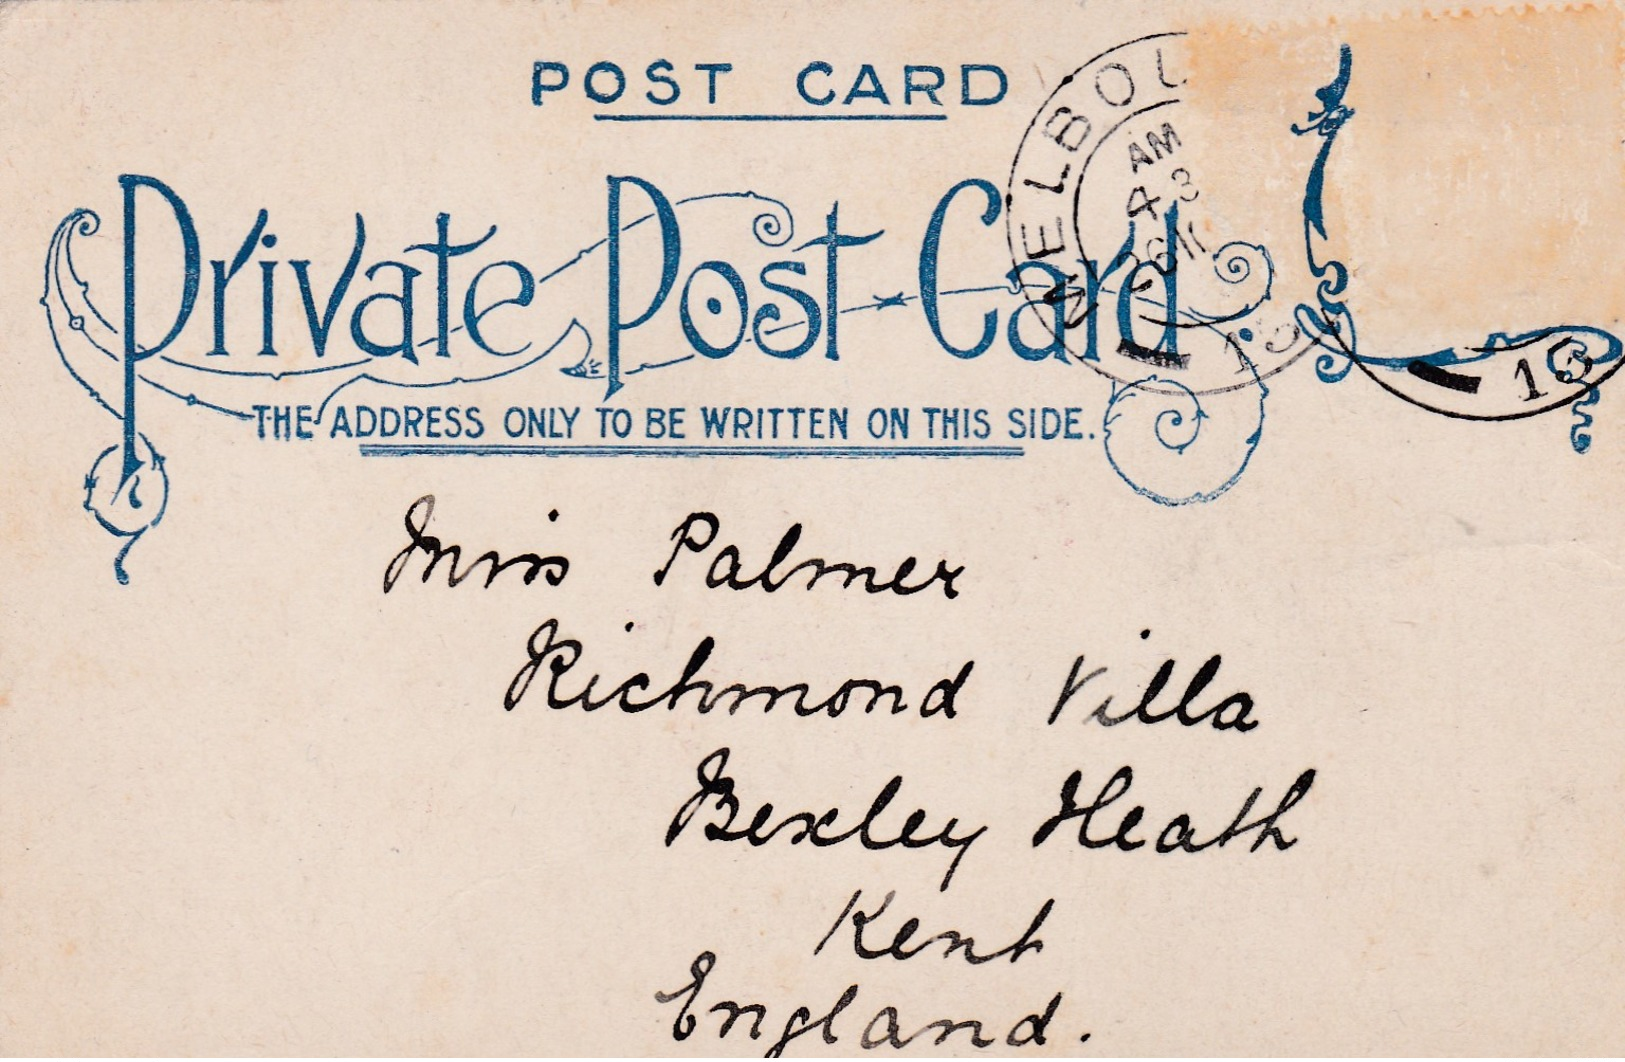 POST CARD
Private Post-Card
THE ADDRESS ONLY TO BE WRITTEN ON THIS SIDE.
MELBOU
AM
4 3
13
13
Miss Palmer
Richmond Villa
Bexley Heath
Kent
England.